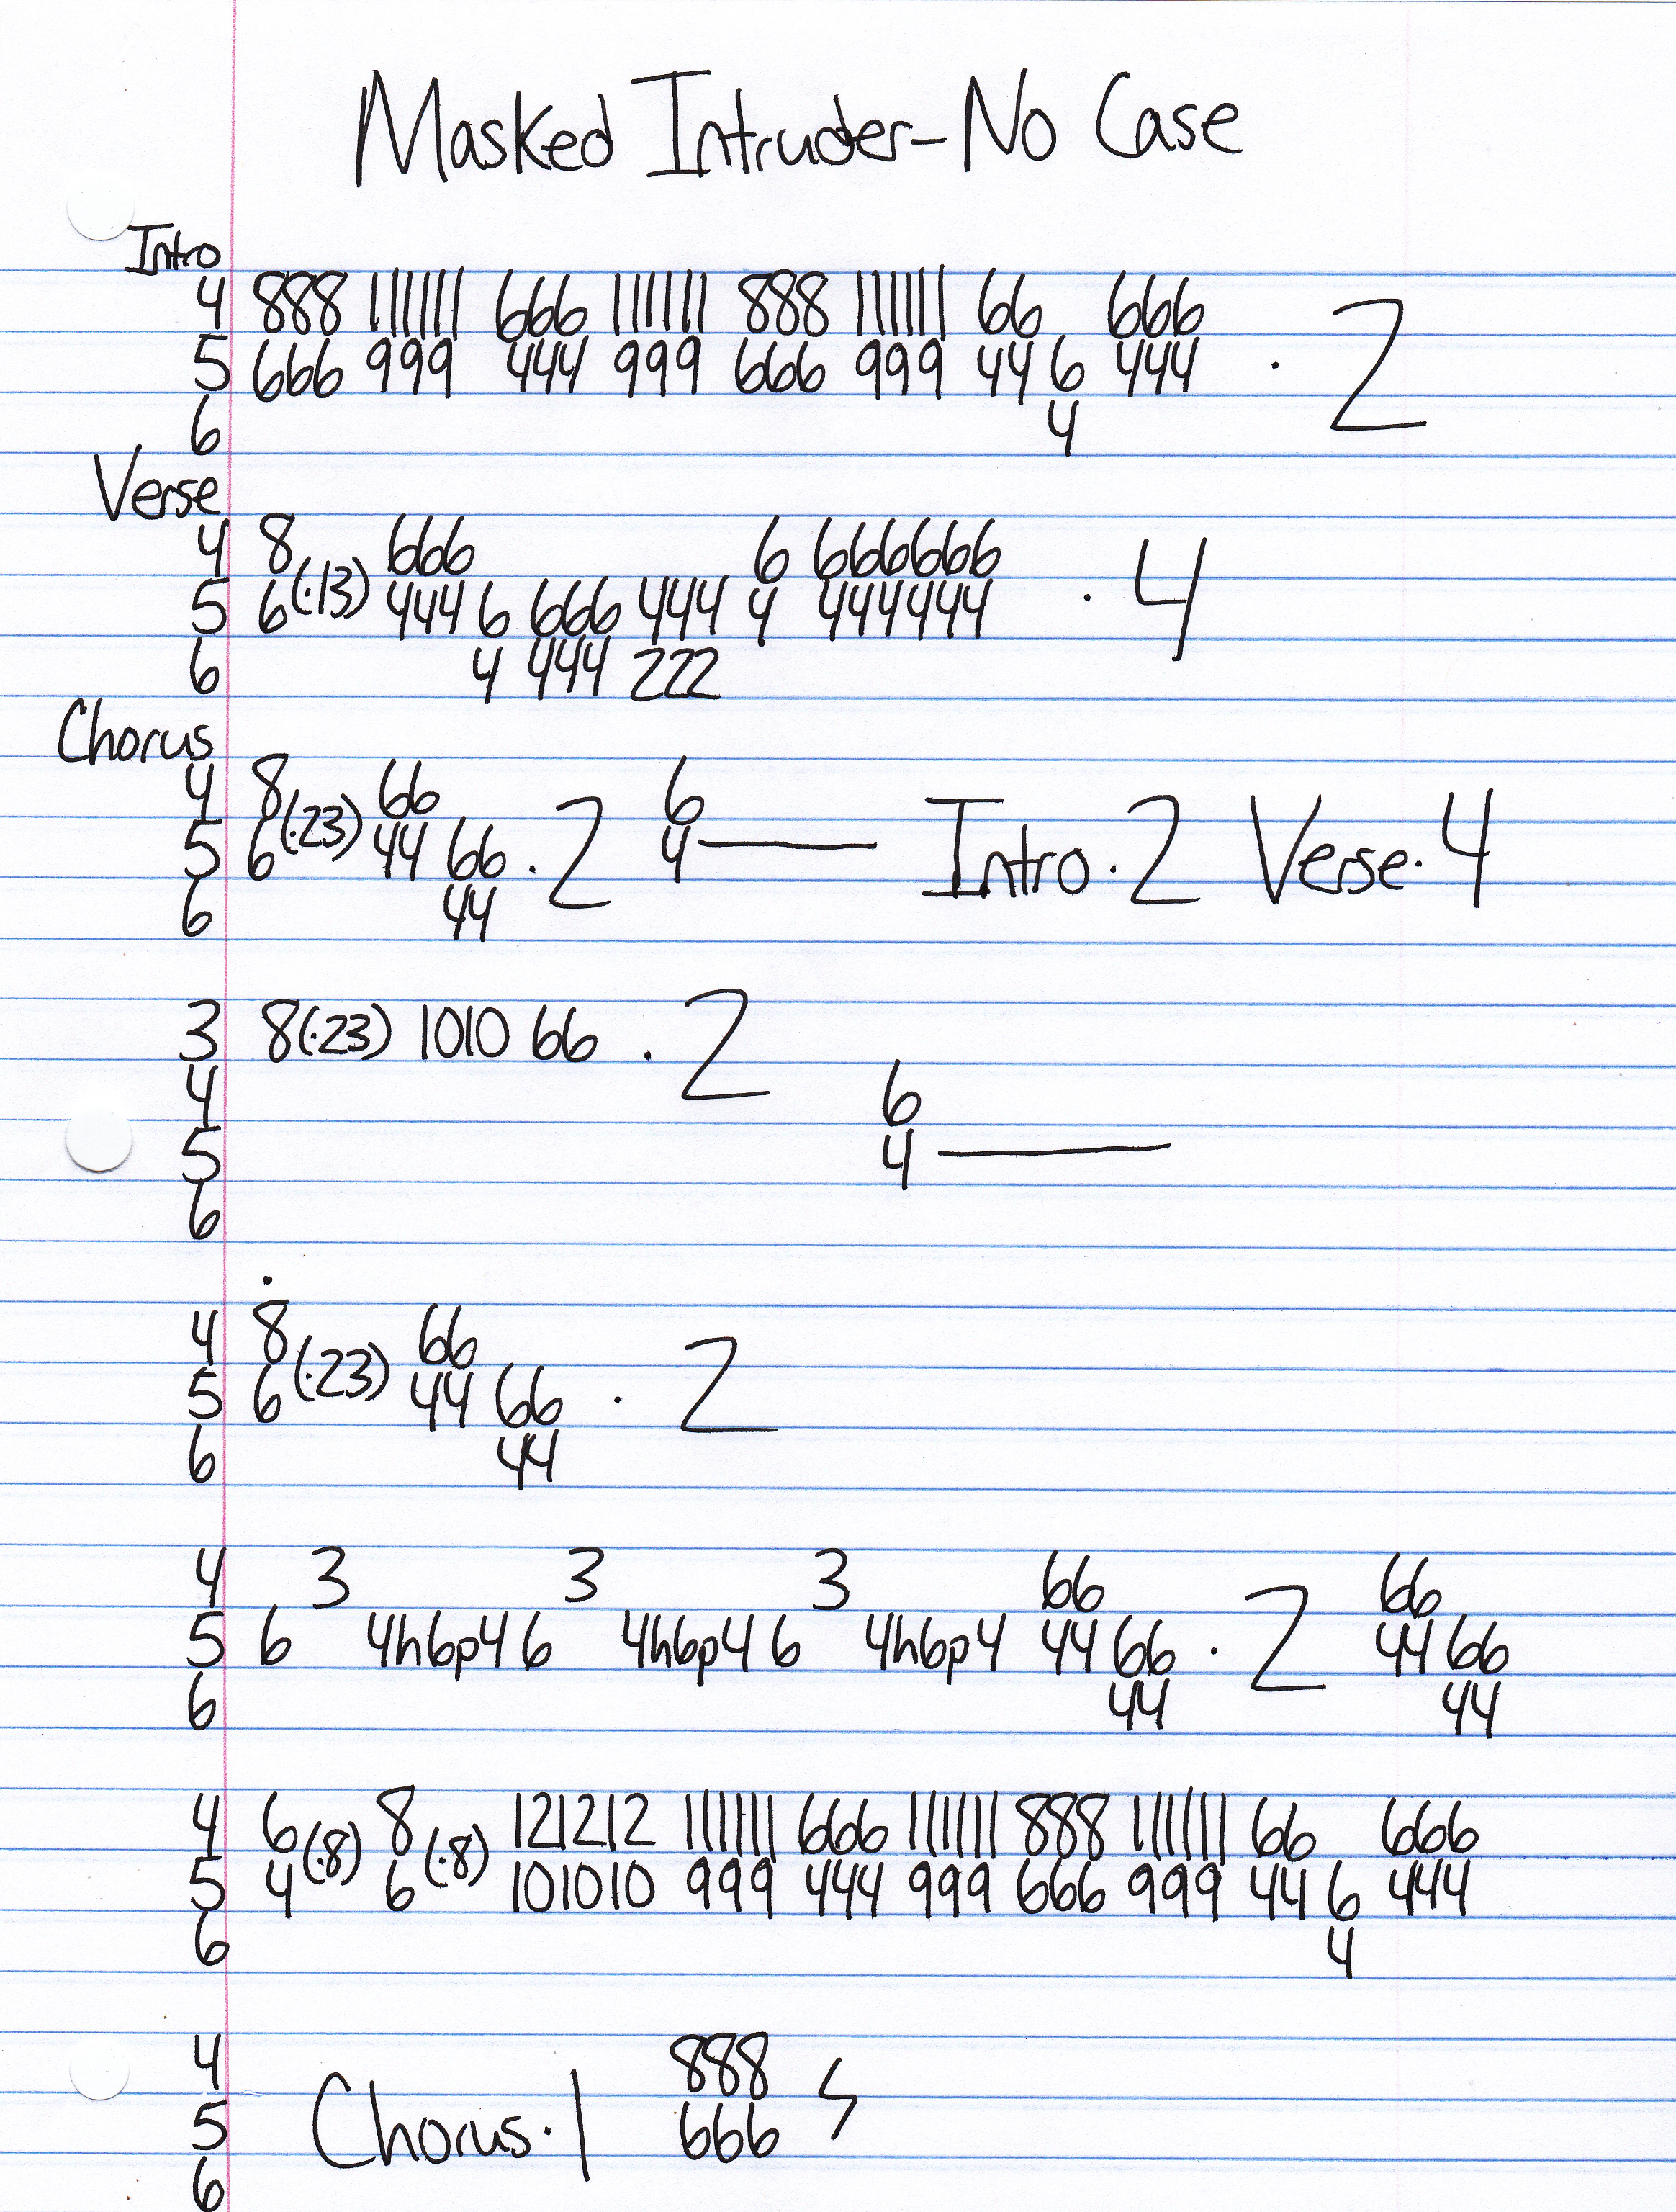 Masked Intruder-No Case
Intro
4 888 111111 666 111111 888 111111 66 666
5 666 999 444 999 666 999 44 6 444 · 2
6 4
Verse
4 8 666 6 666666
5 6(·13) 444 6 666 444 4 444444 · 4
6 4 444 222
Chorus
4 8 66 6
5 6(·23) 44 66 · 2 4— Intro·2 Verse·4
6 44
3 8(·23) 1010 66 · 2
4 6
5 4—
6
4 8 66
5 6(·23) 44 66 · 2
6 44
4 3 3 3 66 66
5 6 4h6p4 6 4h6p4 6 4h6p4 44 66 · 2 44 66
6 44 44
4 6 8 121212 111111 666 111111 888 111111 66 666
5 4(·8) 6(·8) 101010 999 444 999 666 999 44 6 444
6 4
4 888
5 Chorus·1 666
6